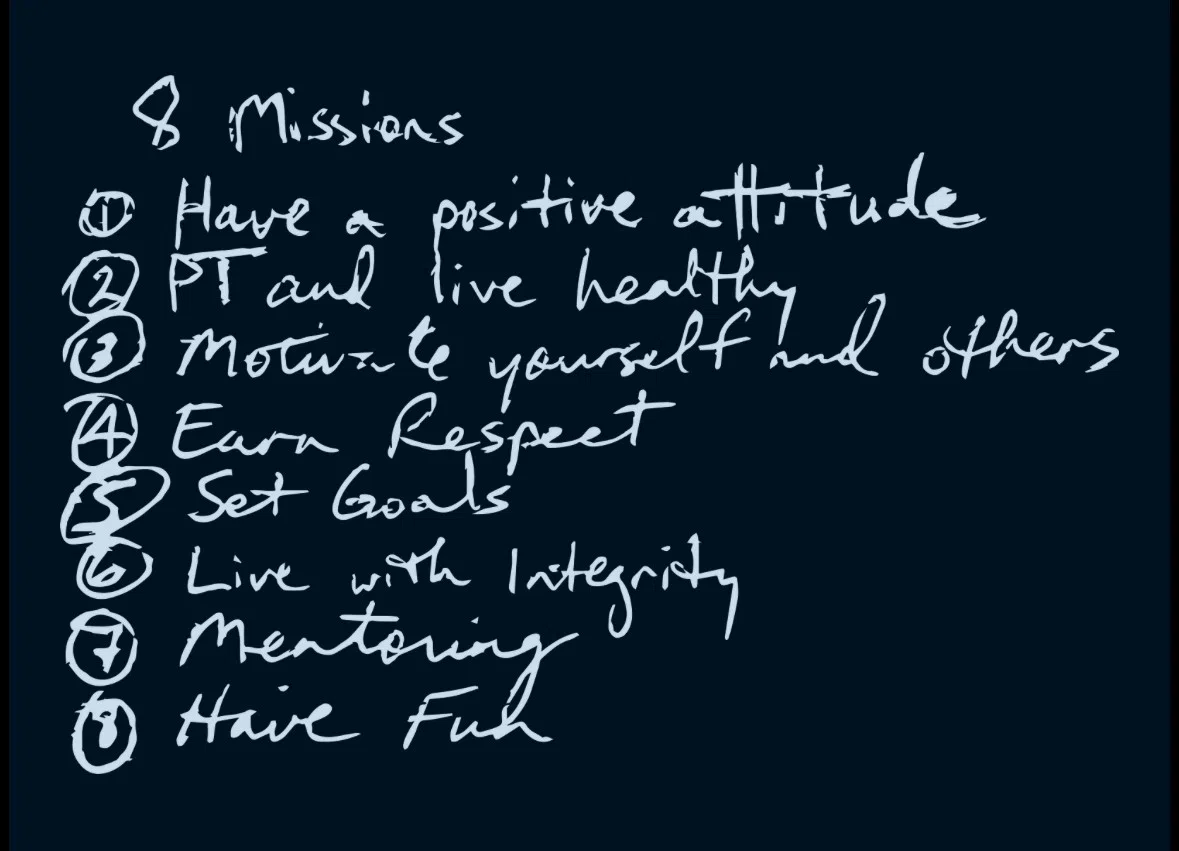 8 Missions
① Have a positive attitude
② PT and live healthy
③ Motivate yourself and others
④ Earn Respect
⑤ Set Goals
⑥ Live with Integrity
⑦ Mentoring
⑧ Have Fun